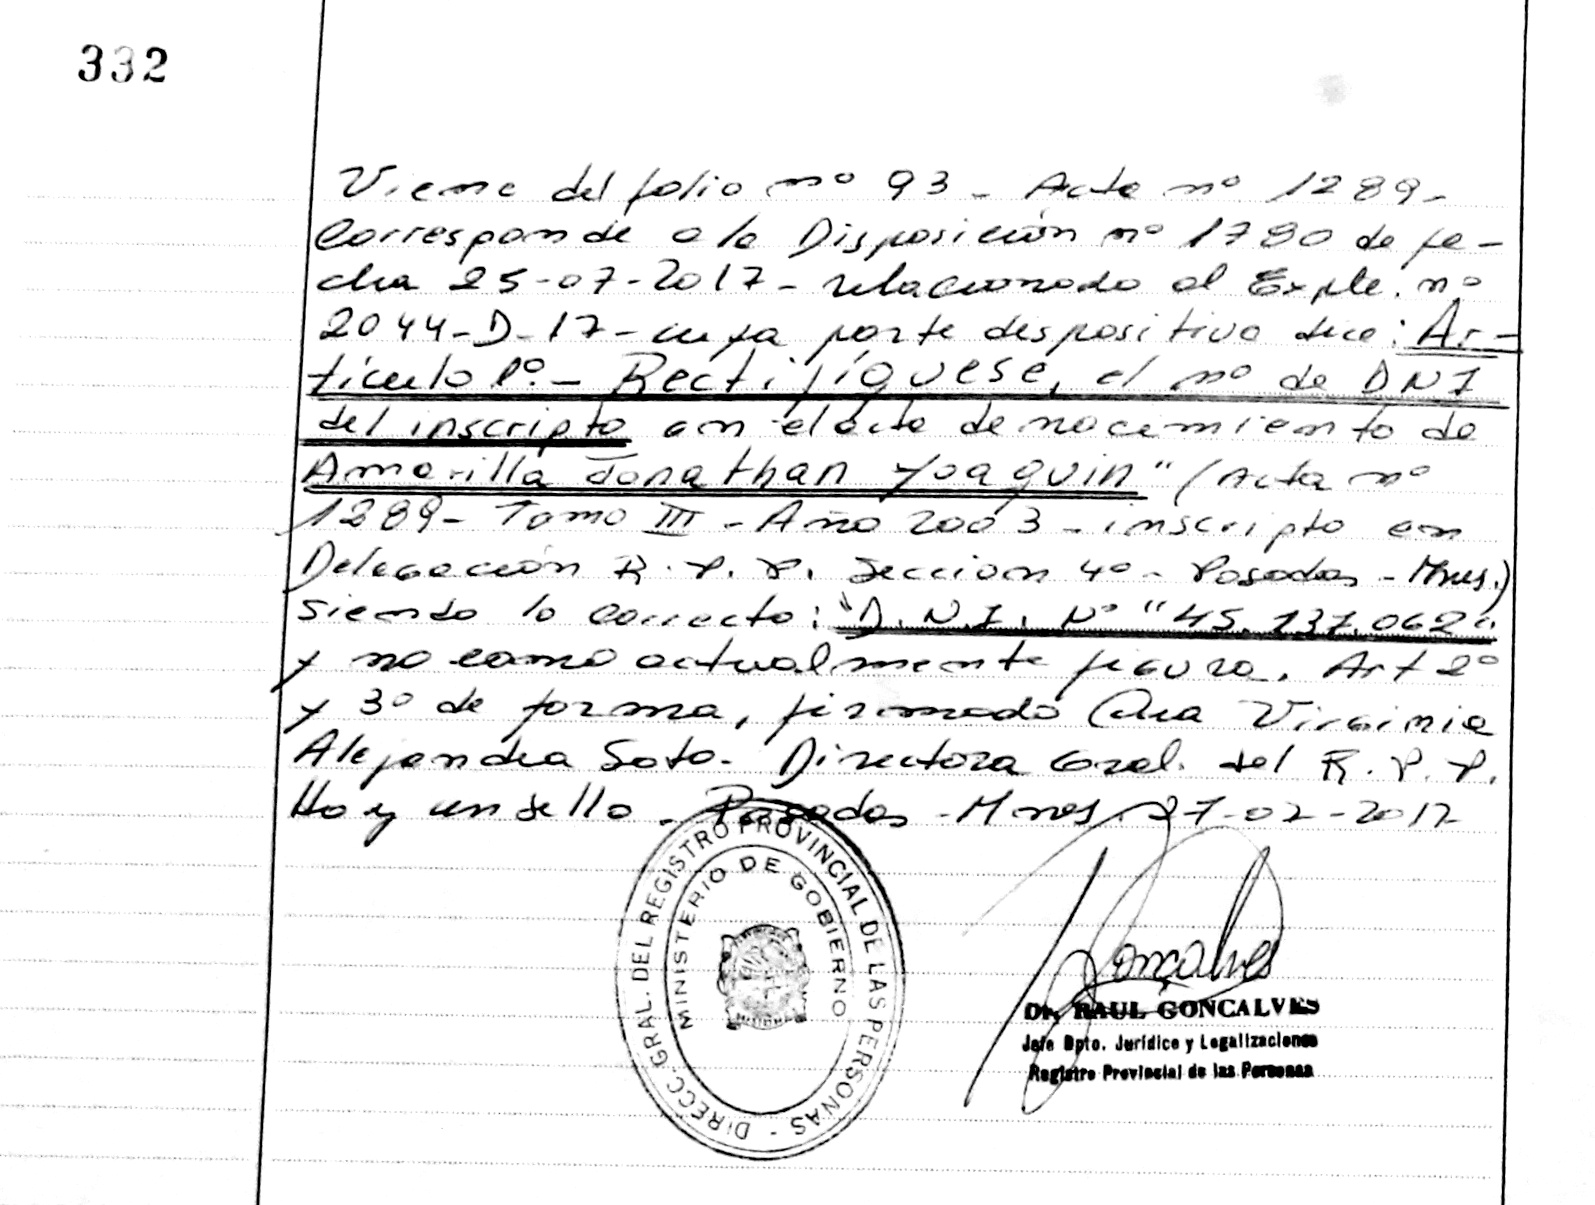 332
Viene del folio nº 93 - Acta nº 1289 -
Corresponde a la Disposición nº 1780 de fe-
cha 25-07-2017 - relacionado al Expte. nº
2044-D-17 - cuya parte dispositiva dice: Ar-
tículo 1º.- Rectifíquese, el nº de DNI
del inscripto en el acta de nacimiento de
Amarilla Jonathan Joaquin" (Acta nº
1289 - Tomo III - Año 2003 - inscripto en
Delegación R.P.P. Seccion 4º - Posadas - Mnes.)
siendo lo correcto: "D.N.I. Nº "45.137.062".
y no como actualmente figura. Art 2º
y 3º de forma, firmado Dra Virginia
Alejandra Soto. Directora Gral. del R.P.P.
Hay un sello - Posadas - Mnes 27-02-2017
DIRECC. GRAL. DEL REGISTRO PROVINCIAL DE LAS PERSONAS -
MINISTERIO DE GOBIERNO
Goncalves
Dr. RAUL GONCALVES
Jefe Dpto. Jurídico y Legalizaciones
Registro Provincial de las Personas